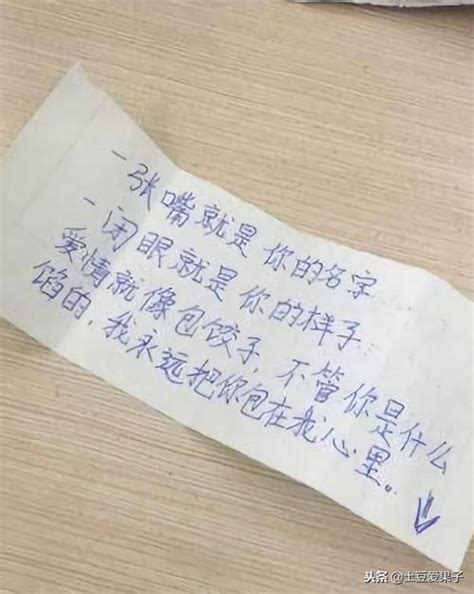 一张嘴就是你的名字
一闭眼就是你的样子
爱情就像包饺子，不管你是什么
馅的，我永远把你包在我心里。
头条 @土豆爱果子